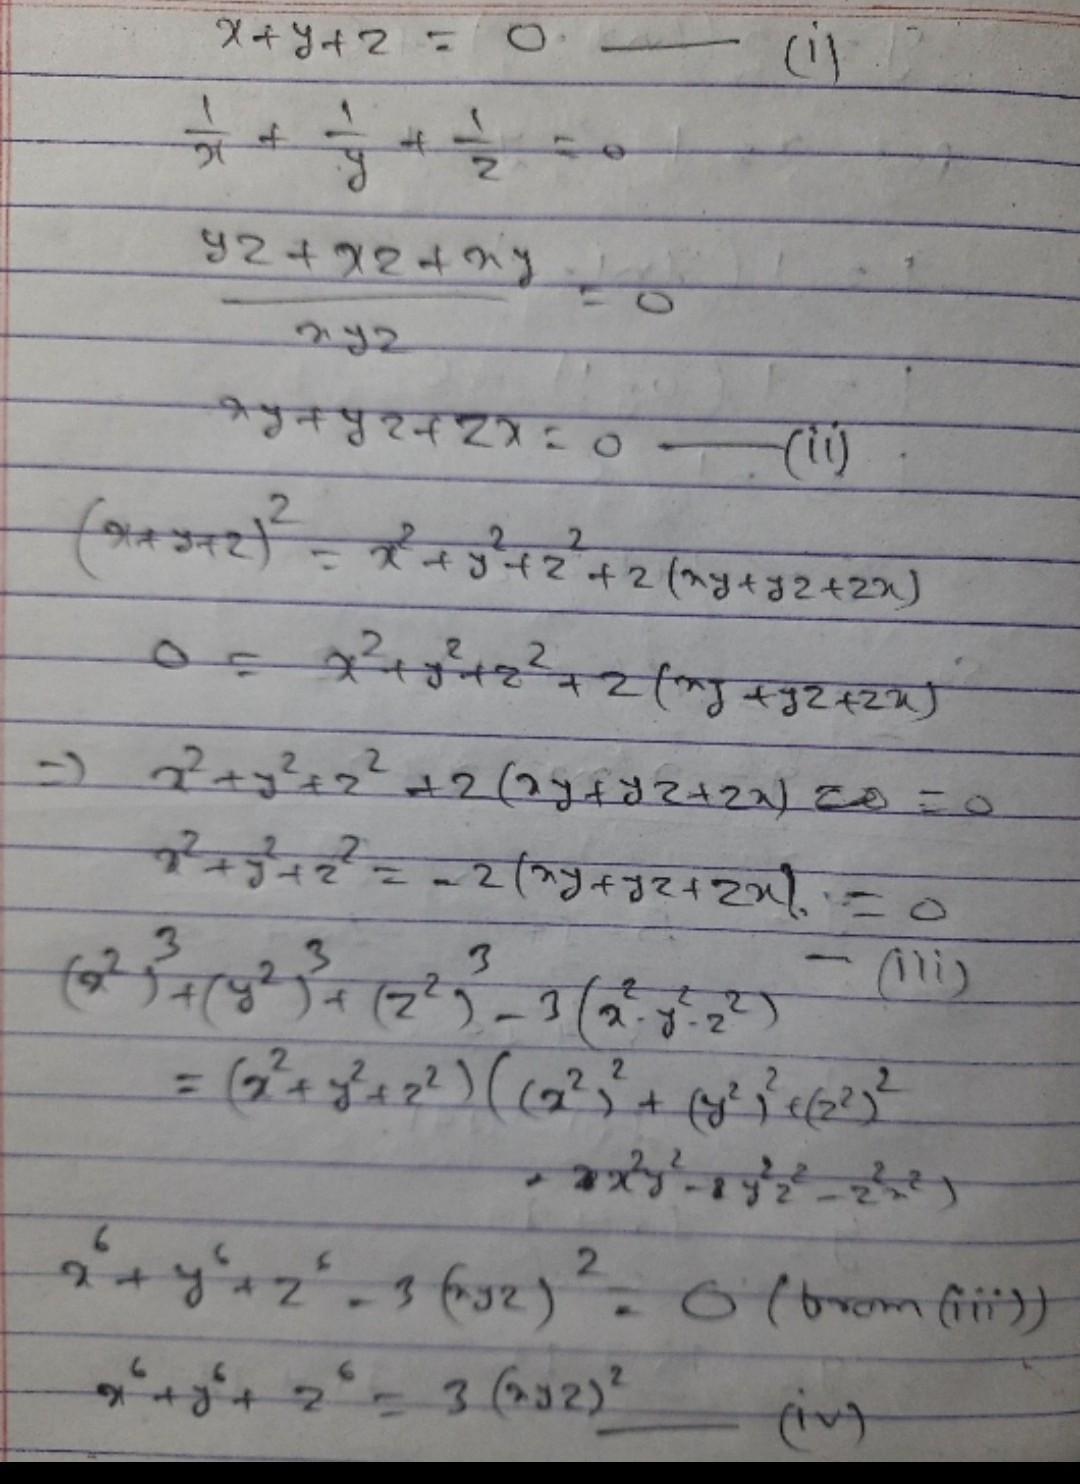 x+y+z = 0 — (i)
1/x + 1/y + 1/z = 0
(yz + xz + xy)/xyz = 0
xy + yz + zx = 0 — (ii)
(x+y+z)² = x² + y² + z² + 2(xy + yz + zx)
0 = x² + y² + z² + 2(xy + yz + zx)
=> x² + y² + z² + 2(xy + yz + zx) = 0
x² + y² + z² = -2(xy + yz + zx) = 0
— (iii)
(x²)³ + (y²)³ + (z²)³ - 3(x².y².z²)
= (x² + y² + z²)((x²)² + (y²)² + (z²)²
- x²y² - y²z² - z²x²)
x⁶ + y⁶ + z⁶ - 3(xyz)² = 0 (from (iii))
x⁶ + y⁶ + z⁶ = 3(xyz)² — (iv)